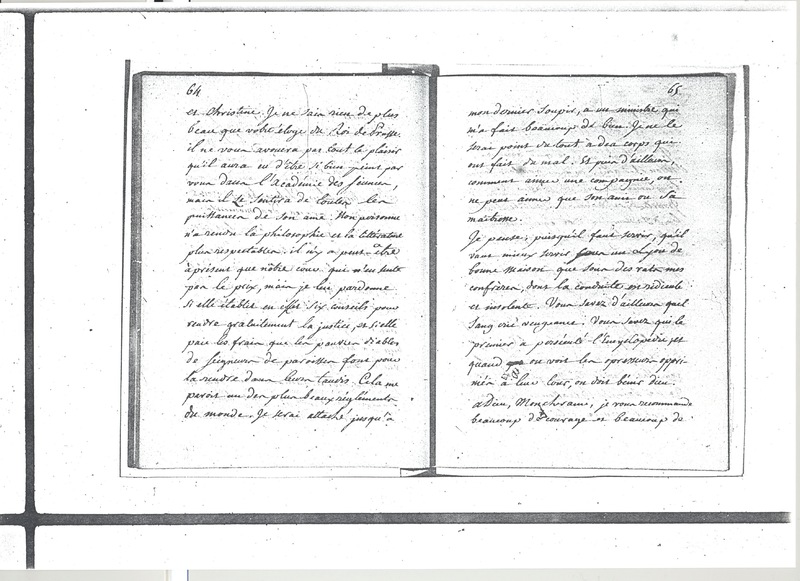 64
et Christine. Je ne sais rien de plus
beau que votre éloge du Roi de Prusse.
il ne vous avouera pas tout le plaisir
qu'il aura eu d'être si bien peint par
vous dans l'Académie des
mais il le sentira de toutes les
puissances de son ame. Non personne
n'a rendu la philosophie et la littérature
plus respectables. il n'y a peut-être
àprésent que nôtre cour qui n'en sente
pas le prix, mais je lui pardonne
si elle établit en effet six conseils pour
rendre gratuitement la justice, et si elle
paie les frais que les pauvres diables
de seigneurs de paroisses font pour
la rendre dans leurs taudis. Cela me
paroit un des plus beaux réglements
du monde. Je serai attaché jusqu'à
65
mon dernier soupir, a un ministre qui
m'a fait beaucoup de bien. Je ne le
serai point du tout a des corps qui
ont fait du mal. Et puis d'ailleurs,
comment aimer une compagnie, on
ne peut aimer que son ami ou sa
maitresse.
Je pense, puisqu'il faut servir, qu'il
vaut mieux servir sous un Lyon de
bonne maison que sous des rats mes
confrères, dont la conduite est ridicule
et insolente. Vous savez d'ailleurs quel
sang crie vengeance. Vous savez qui le
premier a persécuté l'Encyclopédie, et
quand on voit les opresseurs oppri-
més à leur tour, on doit bénir dieu.
adieu, Mon cher ami, je vous recommande
beaucoup de courage et beaucoup de